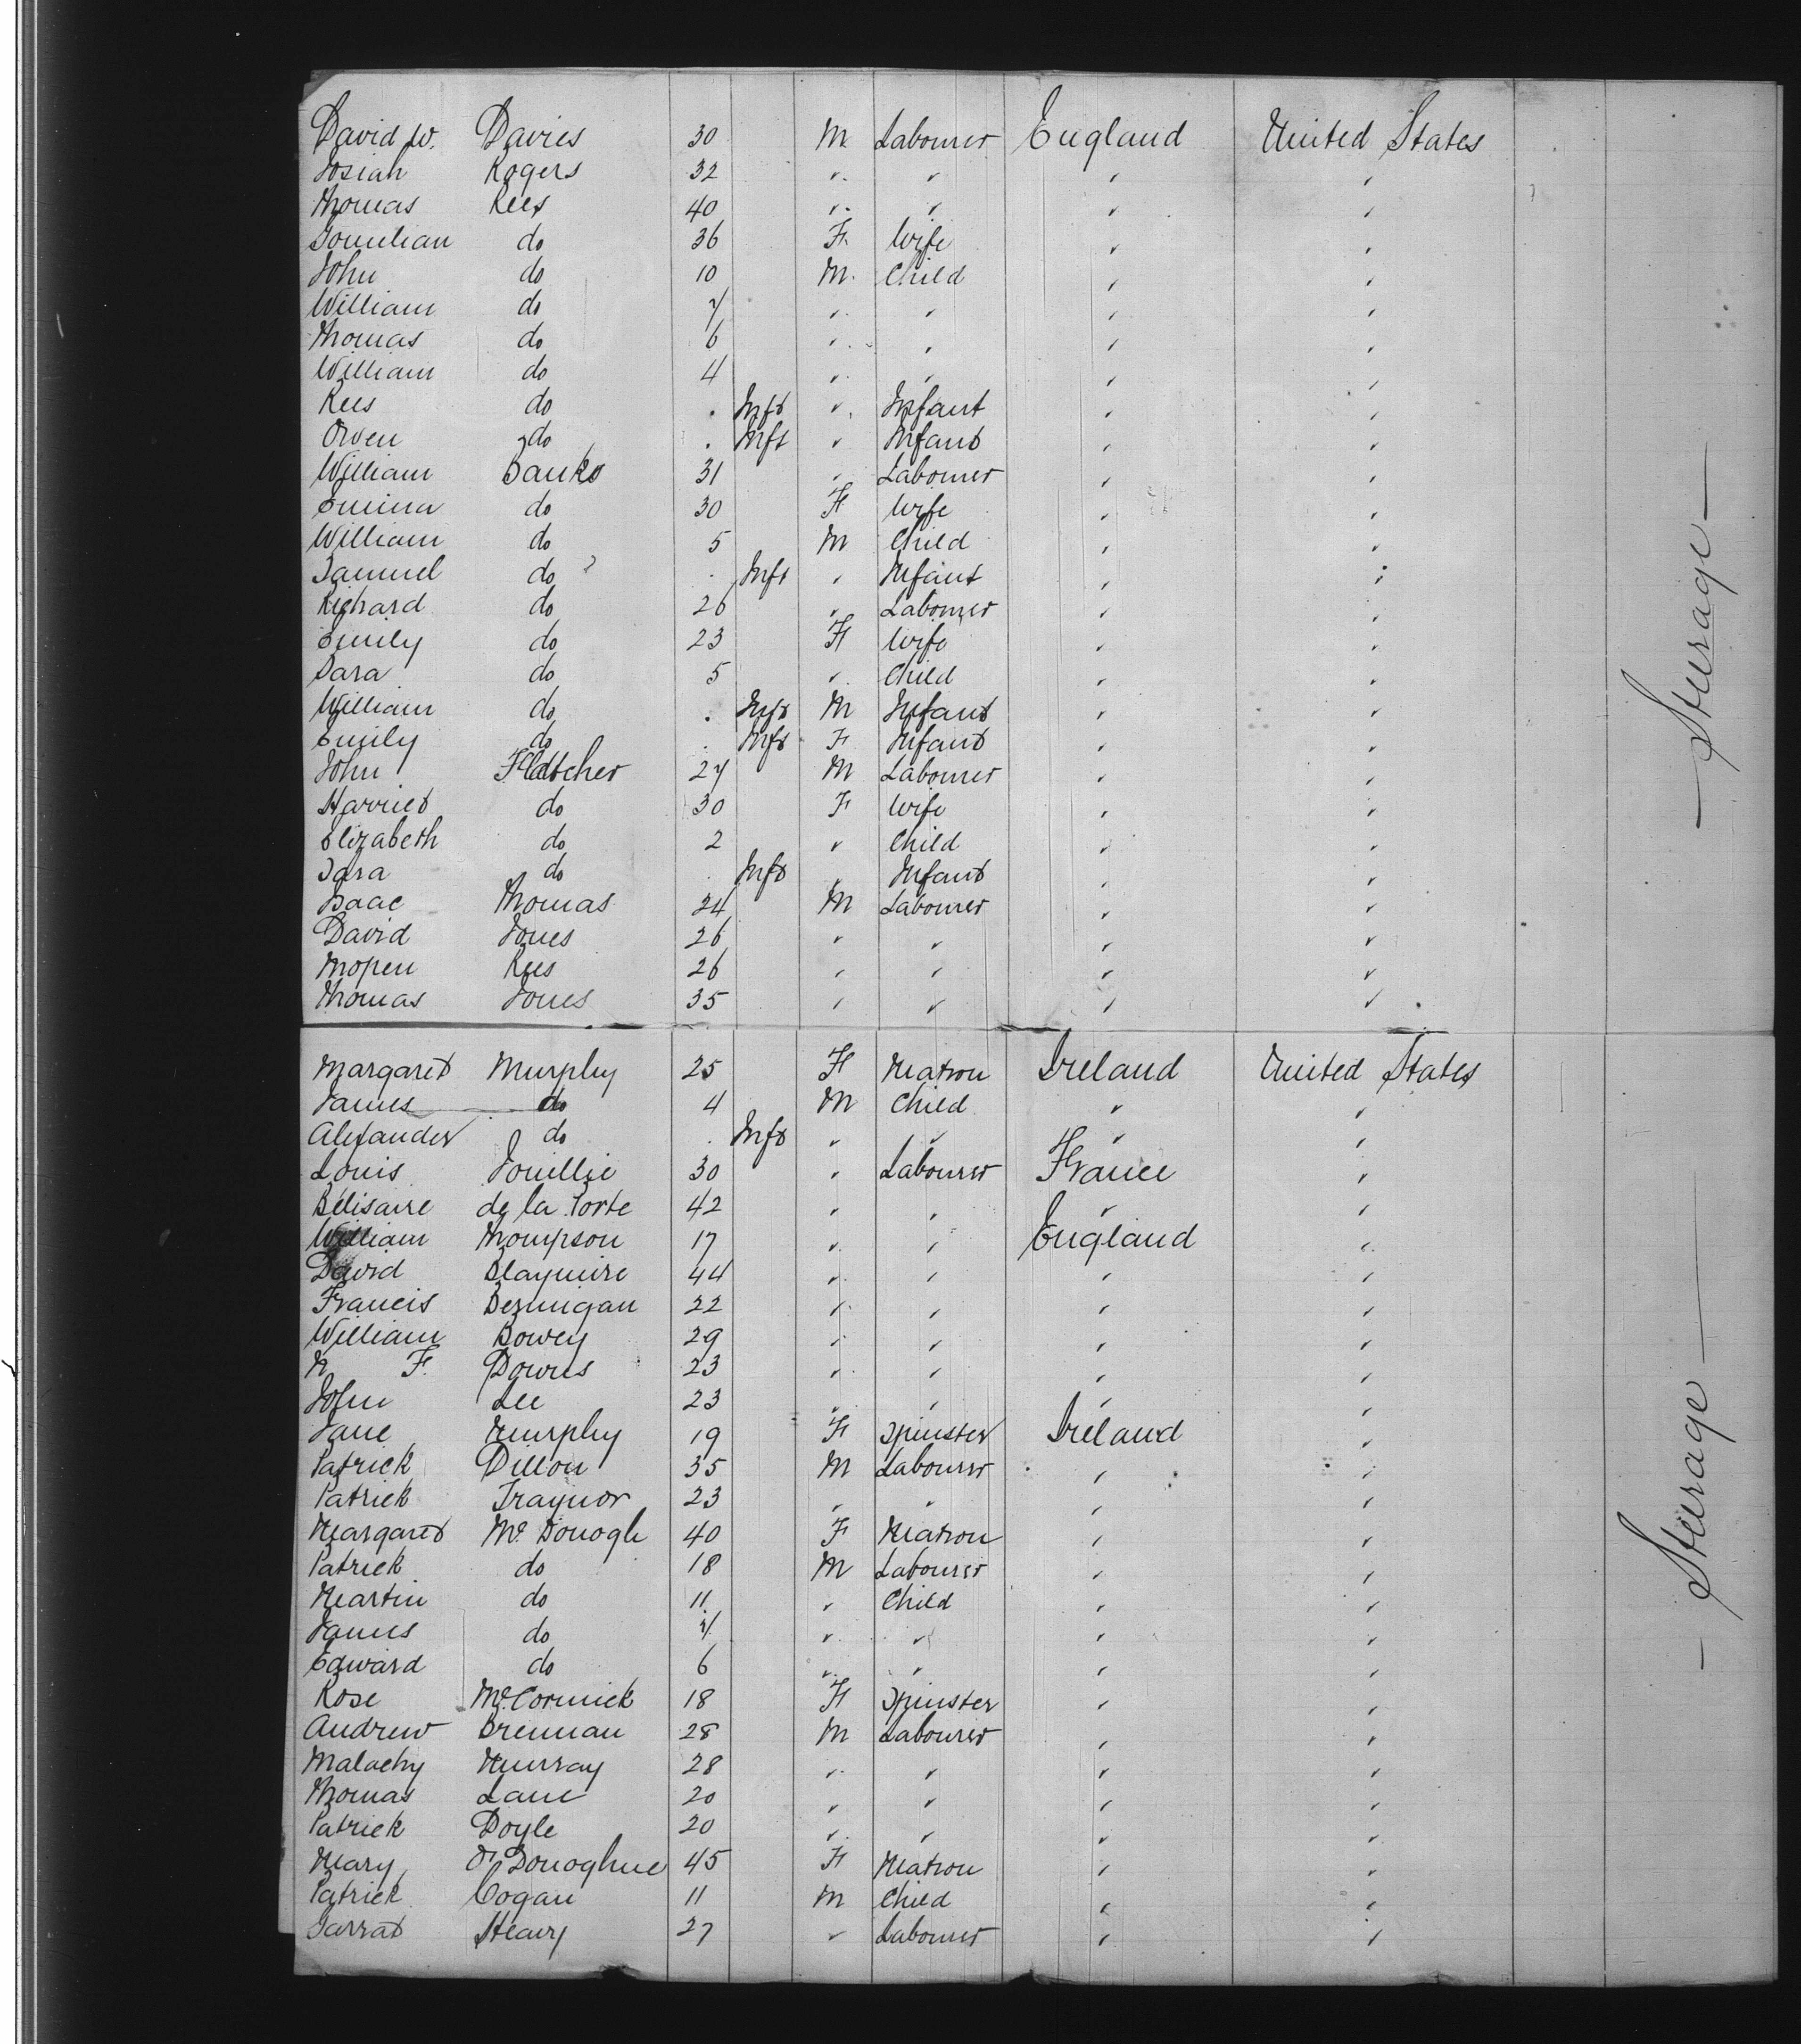 David W. Davies 30 M Labourer England United States
Josiah Rogers 32 " " " "
Thomas Rees 40 " " " "
do 36 F. Wife " "
John do 10 M. Child " "
William do 7 " " " "
Thomas do 6 " " " "
William do 4 " " " "
Rees do . Inft " Infant " "
Owen do . Inft " Infant " "
William Banks 31 " Labourer " "
Emma do 30 F Wife " "
William do 5 M Child " "
Samuel do . Inft " Infant " "
Richard do 26 " Labourer " "
Emily do 23 F Wife " "
Sara do 5 " Child " "
William do . Inft M Infant " "
Emily do . Inft F Infant " "
John Fletcher 27 M Labourer " "
Harriet do 30 F Wife " "
Elizabeth do 2 " Child " "
Sara do . Inft " Infant " "
Isaac Thomas 24 M Labourer " "
David Jones 26 " " " "
Rees 26 " " " "
Thomas Jones 35 " " " "
— Steerage —
Margaret Murphy 25 F Matron Ireland United States
James do 4 M Child " "
Alexander do . Inft " " " "
Louis 30 " Labourer France "
Bélisaire de la Porte 42 " " " "
William Thompson 17 " " England "
David Blaymire 44 " " " "
Francis 22 " " " "
William Bowey 29 " " " "
F. Downs 23 " " " "
John Lee 23 " " " "
Jane Murphy 19 F Spinster Ireland "
Patrick Dillon 35 M Labourer " "
Patrick Traynor 23 " " " "
Margaret Mc Donogh 40 F Matron " "
Patrick do 18 M Labourer " "
Martin do 11 " Child " "
James do 7 " " " "
Edward do 6 " " " "
Rose McCormick 18 F Spinster " "
Andrew Brennan 28 M Labourer " "
Malachy Murray 28 " " " "
Thomas Lane 20 " " " "
Patrick Doyle 20 " " " "
Mary O'Donoghue 45 F Matron " "
Patrick Cogan 11 M Child " "
Garrat Heavy 27 " Labourer " "
— Steerage —